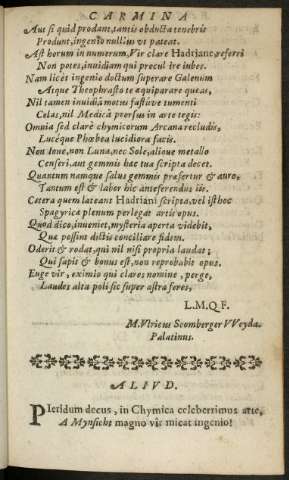 CARMINA
Aut si quid prodant, tantis obducta tenebris
Produnt, ingenio nullius vt pateat.
Ast horum in numerum, Vir clare Hadriane, referri
Non potes, invidiam qui procul ire iubes.
Nam licet ingenio doctum superare Galenum
Atque Theophrasto te aquiparare queas,
Nil tamen invidiâ motus fastuve tumenti
Celas, nil Medicâ prorsus in arte tegis:
Omnia sed clarè chymicorum Arcana recludis,
Lucéque Phœbea lucidiora facis.
Non Ioue, non Luna, nec Sole, aliove metallo
Censeri, aut gemmis hac tua scripta decet.
Quantum namque salus gemmis præfertur & auro,
Tantum est & labor hic anteferendus iis.
Cetera quem lateant Hadriani scripta, vel isthoc
Spagyrica plenum perlegat artis opus.
Quod dico, inveniet, mysteria aperta videbit,
Qua possint dictis conciliare fidem.
Oderit & rodat, qui nil nisi propria laudat;
Qui sapit & bonus est, non reprobabit opus.
Euge vir, eximio qui clares nomine, perge,
Laudes alta poli sic super astra feres,
L.M.Q.F.
M. Vlricus Scomberger VVeyda-
Palatinus.
ALIVD.
PIeridum decus, in Chymica celeberrimus arte,
A Mynsicht magno vir micat ingenio!